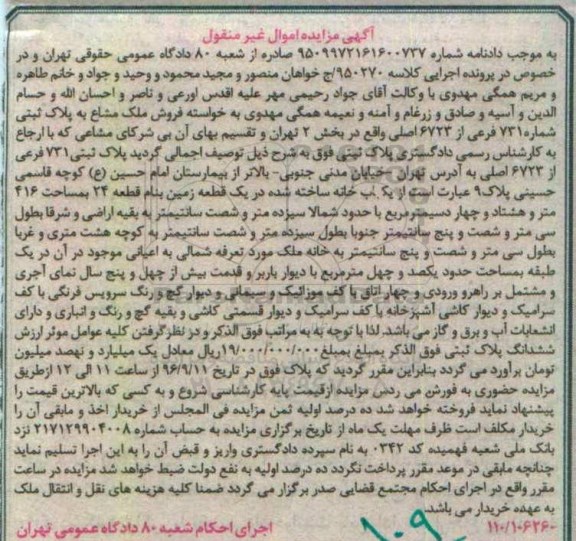 آگهی مزایده اموال غیر منقول
به موجب دادنامه شماره ۹۵۰۹۹۷۲۱۶۱۶۰۰۷۳۷ صادره از شعبه ۸۰ دادگاه عمومی حقوقی تهران و در
خصوص در پرونده اجرایی کلاسه ۹۵۰۲۷۰/ج خواهان منصور و مجید محمود و وحید و جواد و خانم طاهره
و مریم همگی مهدوی با وکالت آقای جواد رحیمی مهر علیه اقدس اورعی و ناصر و احسان الله و حسام
الدین و آسیه و صادق و زرغام و آمنه و نعیمه همگی مهدوی به خواسته فروش ملک مشاع به پلاک ثبتی
شماره ۷۳۱ فرعی از ۶۷۲۳ اصلی واقع در بخش ۲ تهران و تقسیم بهای آن بی شرکای مشاعی که با ارجاع
به کارشناس رسمی دادگستری پلاک ثبتی فوق به شرح ذیل توصیف اجمالی گردید پلاک ثبتی ۷۳۱ فرعی
از ۶۷۲۳ اصلی به آدرس تهران -خیابان مدنی جنوبی- بالاتر از بیمارستان امام حسین (ع) کوچه قاسمی
حسینی پلاک ۹ عبارت است از یک باب خانه ساخته شده در یک قطعه زمین بنام قطعه ۲۴ بمساحت ۴۱۶
متر و هشتاد و چهار دسیمترمربع با حدود شمالا سیزده متر و شصت سانتیمتر به بقیه اراضی و شرقا بطول
سی متر و شصت و پنج سانتیمتر جنوبا بطول سیزده متر و شصت سانتیمتر به کوچه هشت متری و غربا
بطول سی متر و شصت و پنج سانتیمتر به خانه ملک مورد تعرفه شمالی به اعیانی موجود در آن در یک
طبقه بمساحت حدود یکصد و چهل مترمربع با دیوار باربر و قدمت بیش از چهل و پنج سال نمای آجری
و مشتمل بر راهرو ورودی و چهار اتاق با کف موزائیک و سیمانی و دیوار گچ و رنگ سرویس فرنگی با کف
سرامیک و دیوار کاشی آشپزخانه با کف سرامیک و دیوار قسمتی کاشی و بقیه گچ و رنگ و انباری و دارای
انشعابات آب و برق و گاز می باشد. لذا با توجه به به مراتب فوق الذکر و در نظر گرفتن کلیه عوامل موثر ارزش
ششدانگ پلاک ثبتی فوق الذکر بمبلغ بمبلغ ۱۹/۰۰۰/۰۰۰/۰۰۰ریال معادل یک میلیارد و نهصد میلیون
تومان برآورد می گردد بنابراین مقرر گردید که پلاک فوق در تاریخ ۹۶/۹/۱۱ از ساعت ۱۱ الی ۱۲ ازطریق
مزایده حضوری به فورش می رسد مزایده ازقیمت پایه کارشناسی شروع و به کسی که بالاترین قیمت را
پیشنهاد نماید فروخته خواهد شد ده درصد اولیه ثمن مزایده فی المجلس از خریدار اخذ و مابقی آن را
خریدار مکلف است ظرف مهلت یک ماه از تاریخ برگزاری مزایده به حساب شماره ۲۱۷۱۲۹۹۰۴۰۰۸ نزد
بانک ملی شعبه فهمیده کد ۰۳۴۲ به نام سپرده دادگستری واریز و قبض آن را به این اجرا تسلیم نماید
چنانچه مابقی در موعد مقرر پرداخت نگردد ده درصد اولیه به نفع دولت ضبط خواهد شد مزایده در ساعت
مقرر واقع در اجرای احکام مجتمع قضایی صدر برگزار می گردد ضمنا کلیه هزینه های نقل و انتقال ملک
به عهده خریدار می باشد.
۱۱۰/۱۰۶۲۶۰ اجرای احکام شعبه ۸۰ دادگاه عمومی تهران
۱۰۹